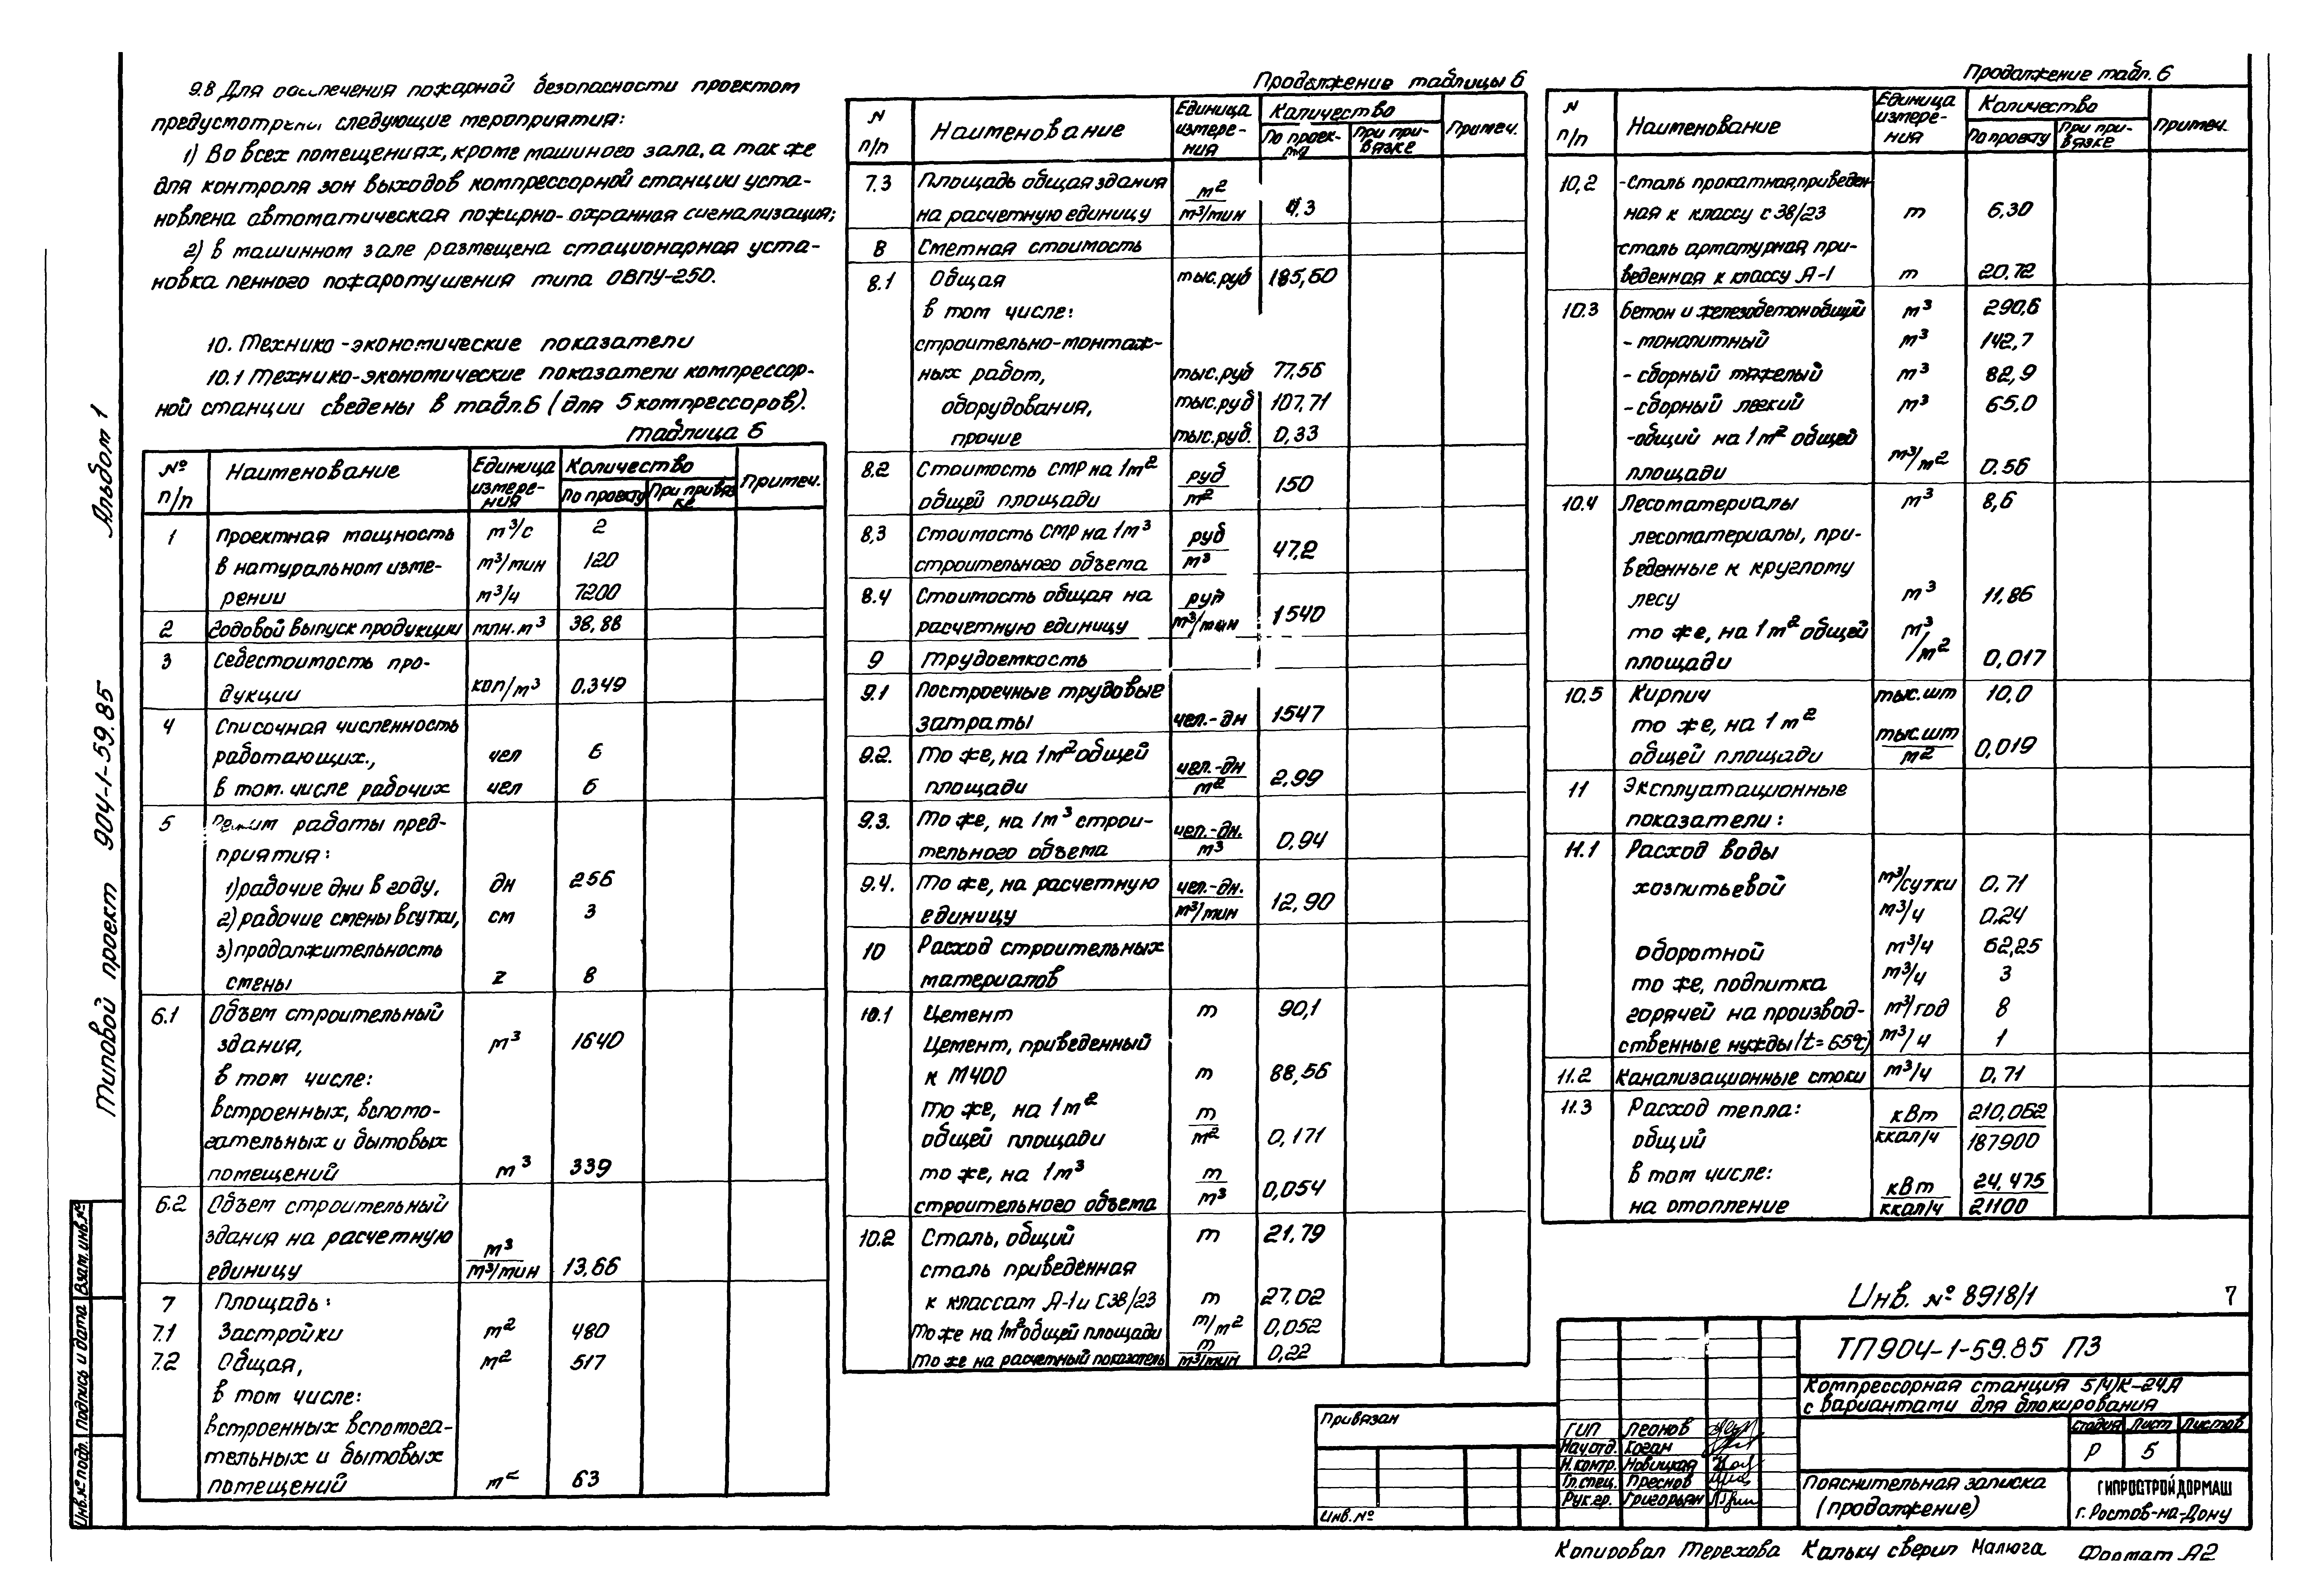 Альбом 1
Типовой проект 904-1-59.85
9.8 Для обеспечения пожарной безопасности проектом
предусмотрены следующие мероприятия:
1) Во всех помещениях, кроме машиного зала, а так же
для контроля зон выходов компрессорной станции уста-
новлена автоматическая пожирно-охранная сигнализация;
2) в машинном зале размещена стационарная уста-
новка пенного пожаротушения типа ОВПУ-250.
10. Технико-экономические показатели
10.1 Технико-экономические показатели компрессор-
ной станции сведены в табл.6 (для 5 компрессоров).
Таблица 6
№ п/п | Наименование | Единица измере-ния | Количество | По проекту | При привяз ке | Примеч.
1 Проектная мощность м³/с 2
в натуральном изме- м³/мин 120
рении м³/ч 7200
2 Годовой выпуск продукции млн.м³ 38,88
3 Себестоимость про-
дукции коп/м³ 0,349
4 Списочная численность
работающих., чел 6
в том. числе рабочих чел 6
5 Режим работы пред-
приятия:
1) рабочие дни в году, дн 256
2) рабочие смены в сутки, см 3
3) продолжительность
смены г 8
6.1 Объем строительный
здания, м³ 1640
в том числе:
встроенных, вспомо-
гательных и бытовых
помещений м³ 339
6.2 Объем строительный
здания на расчетную
единицу м³/м³/мин 13,66
7 Площадь:
7.1 Застройки м² 480
7.2 Общая, м² 517
в том числе:
встроенных вспомога-
тельных и бытовых
помещений м² 63
Продолжение таблицы 6
N п/п | Наименование | Единица измере-ния | Количество | По проек-та | При при-вязке | Примеч.
7.3 Площадь общая здания
на расчетную единицу м²/м³/мин 4,3
8 Сметная стоимость
8.1 Общая тыс.руб 185,60
в том числе:
строительно-монтаж-
ных работ, тыс.руб 77,56
оборудования, тыс.руб 107,71
прочие тыс.руб. 0,33
8.2 Стоимость СМР на 1м²
общей площади руб/м² 150
8,3 Стоимость СМР на 1м³
строительного объема руб/м³ 47,2
8.4 Стоимость общая на
расчетную единицу руб/м³/мин 1540
9 Трудоемкость
9.1 Построечные трудовые
затраты чел.-дн 1547
9.2. То же, на 1м² общей
площади чел.-дн/м² 2,99
9.3. То же, на 1м³ строи-
тельного объема чел.-дн./м³ 0,94
9.4. То же, на расчетную
единицу чел.-дн./м³/мин 12,90
10 Расход строительных
материалов
10.1 Цемент т 90,1
Цемент, приведенный
к М400 т 88,56
То же, на 1м²
общей площади т/м² 0,171
то же, на 1м³
строительного объема т/м³ 0,054
10.2 Сталь, общий т 21.79
сталь приведенная
к классам А-1 и С38/23 т 27.02
То же на 1м² общей площади т/м² 0,052
то же на расчетный показатель т/м³/мин 0,22
Продолжение табл. 6
N п/п | Наименование | Единица измере-ния | Количество | По проекту | При при-вязке | Примеч.
10,2 -Сталь прокатная, приведен
ная к классу с 38/23 т 6.30
сталь арматурная при-
веденная к классу А-1 т 20,72
10.3 Бетон и железобетон общий м³ 290,6
- монолитный м³ 142,7
- сборный тяжелый м³ 82,9
- сборный легкий м³ 65,0
-общий на 1м² общей
площади м³/м² 0.56
10.4 Лесоматериалы м³ 8,6
лесоматериалы, при-
веденные к круглому
лесу м³ 11,86
то же, на 1м² общей
площади м³/м² 0,017
10.5 Кирпич тыс.шт 10,0
то же, на 1м²
общей площади тыс.шт/м² 0,019
11 Эксплуатационные
показатели:
11.1 Расход воды
хозпитьевой м³/сутки 0,71
м³/ч 0,24
оборотной м³/ч 62,25
то же, подпитка м³/ч 3
горячей на производ- м³/год 8
ственные нужды (t=65°С) м³/ч 1
11.2 Канализационные стоки м³/ч 0,71
11.3 Расход тепла:
общий кВт/ккал/ч 210,062/187900
в том числе:
на отопление кВт/ккал/ч 24,475/21100
Инв. № 8918/1 7
ТП904-1-59.85 ПЗ
Компрессорная станция 5(4)К-24А
с вариантами для блокирования
Привязан
Инв.№
ГИП Леонов
Нач.отд. Коган
Н.контр. Новицкая
Гл.спец. Преснов
Рук.гр. Григорьян
Стадия Лист Листов
Р 5
Пояснительная записка
(продолжение)
ГИПРОСТРОЙДОРМАШ
г. Ростов-на-Дону
Инв.№ подл. Подпись и дата Взам.инв.№
Копировал Терехова Кальку сверил Малюга Формат А2